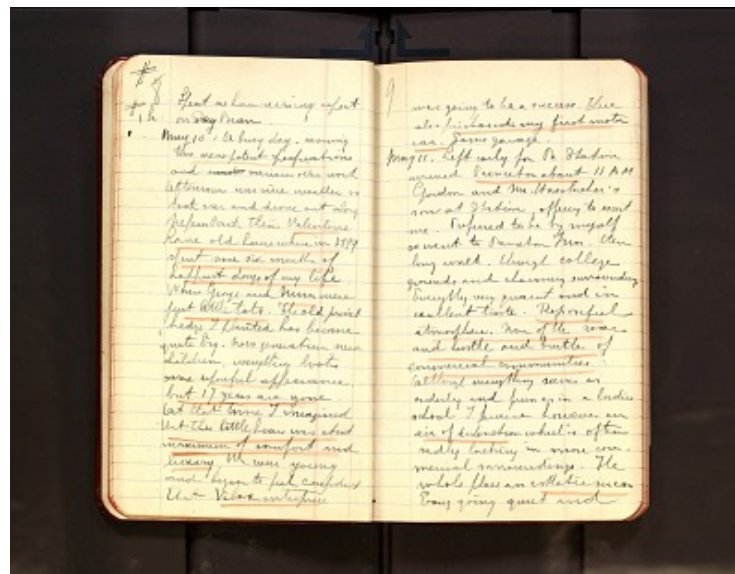 8
Spent an hour revising report
on
May 10. A busy day. morning
this were patent specifications
and various other work
Afternoon was nice weather so
took car and drove out along
then Valentine
Lane old house where in 1899
spent some six months of
happiest days of my life
When George and Nina were
just little tots. The old privet
hedge I planted has become
quite big. now generation new
children, everything looks
same appearance
but 17 years are gone
At that time I imagined
that this little house was about
maximum of comfort and
luxury. We were young
and began to feel confident
that Velox enterprise
9
was going to be a success. Here
also purchased my first motor
car. Same garage.
May 11. Left early for
arrived Princeton about 11 A.M
Gordon and Mr.
sons at station, offering to escort
me. Preferred to be by myself
so went to Princeton Inn. then
long walk. through college
grounds and charming surroundings
Everything very quiet and in
excellent taste. Reposeful
atmosphere. None of the noise
and hustle and bustle of
commercial communities.
Although everything seems as
orderly and prim as in a ladies
school I perceive however an
air of distinction which is often
sadly lacking in more com-
mercial surroundings. The
whole place an esthetic
Easy going quiet and